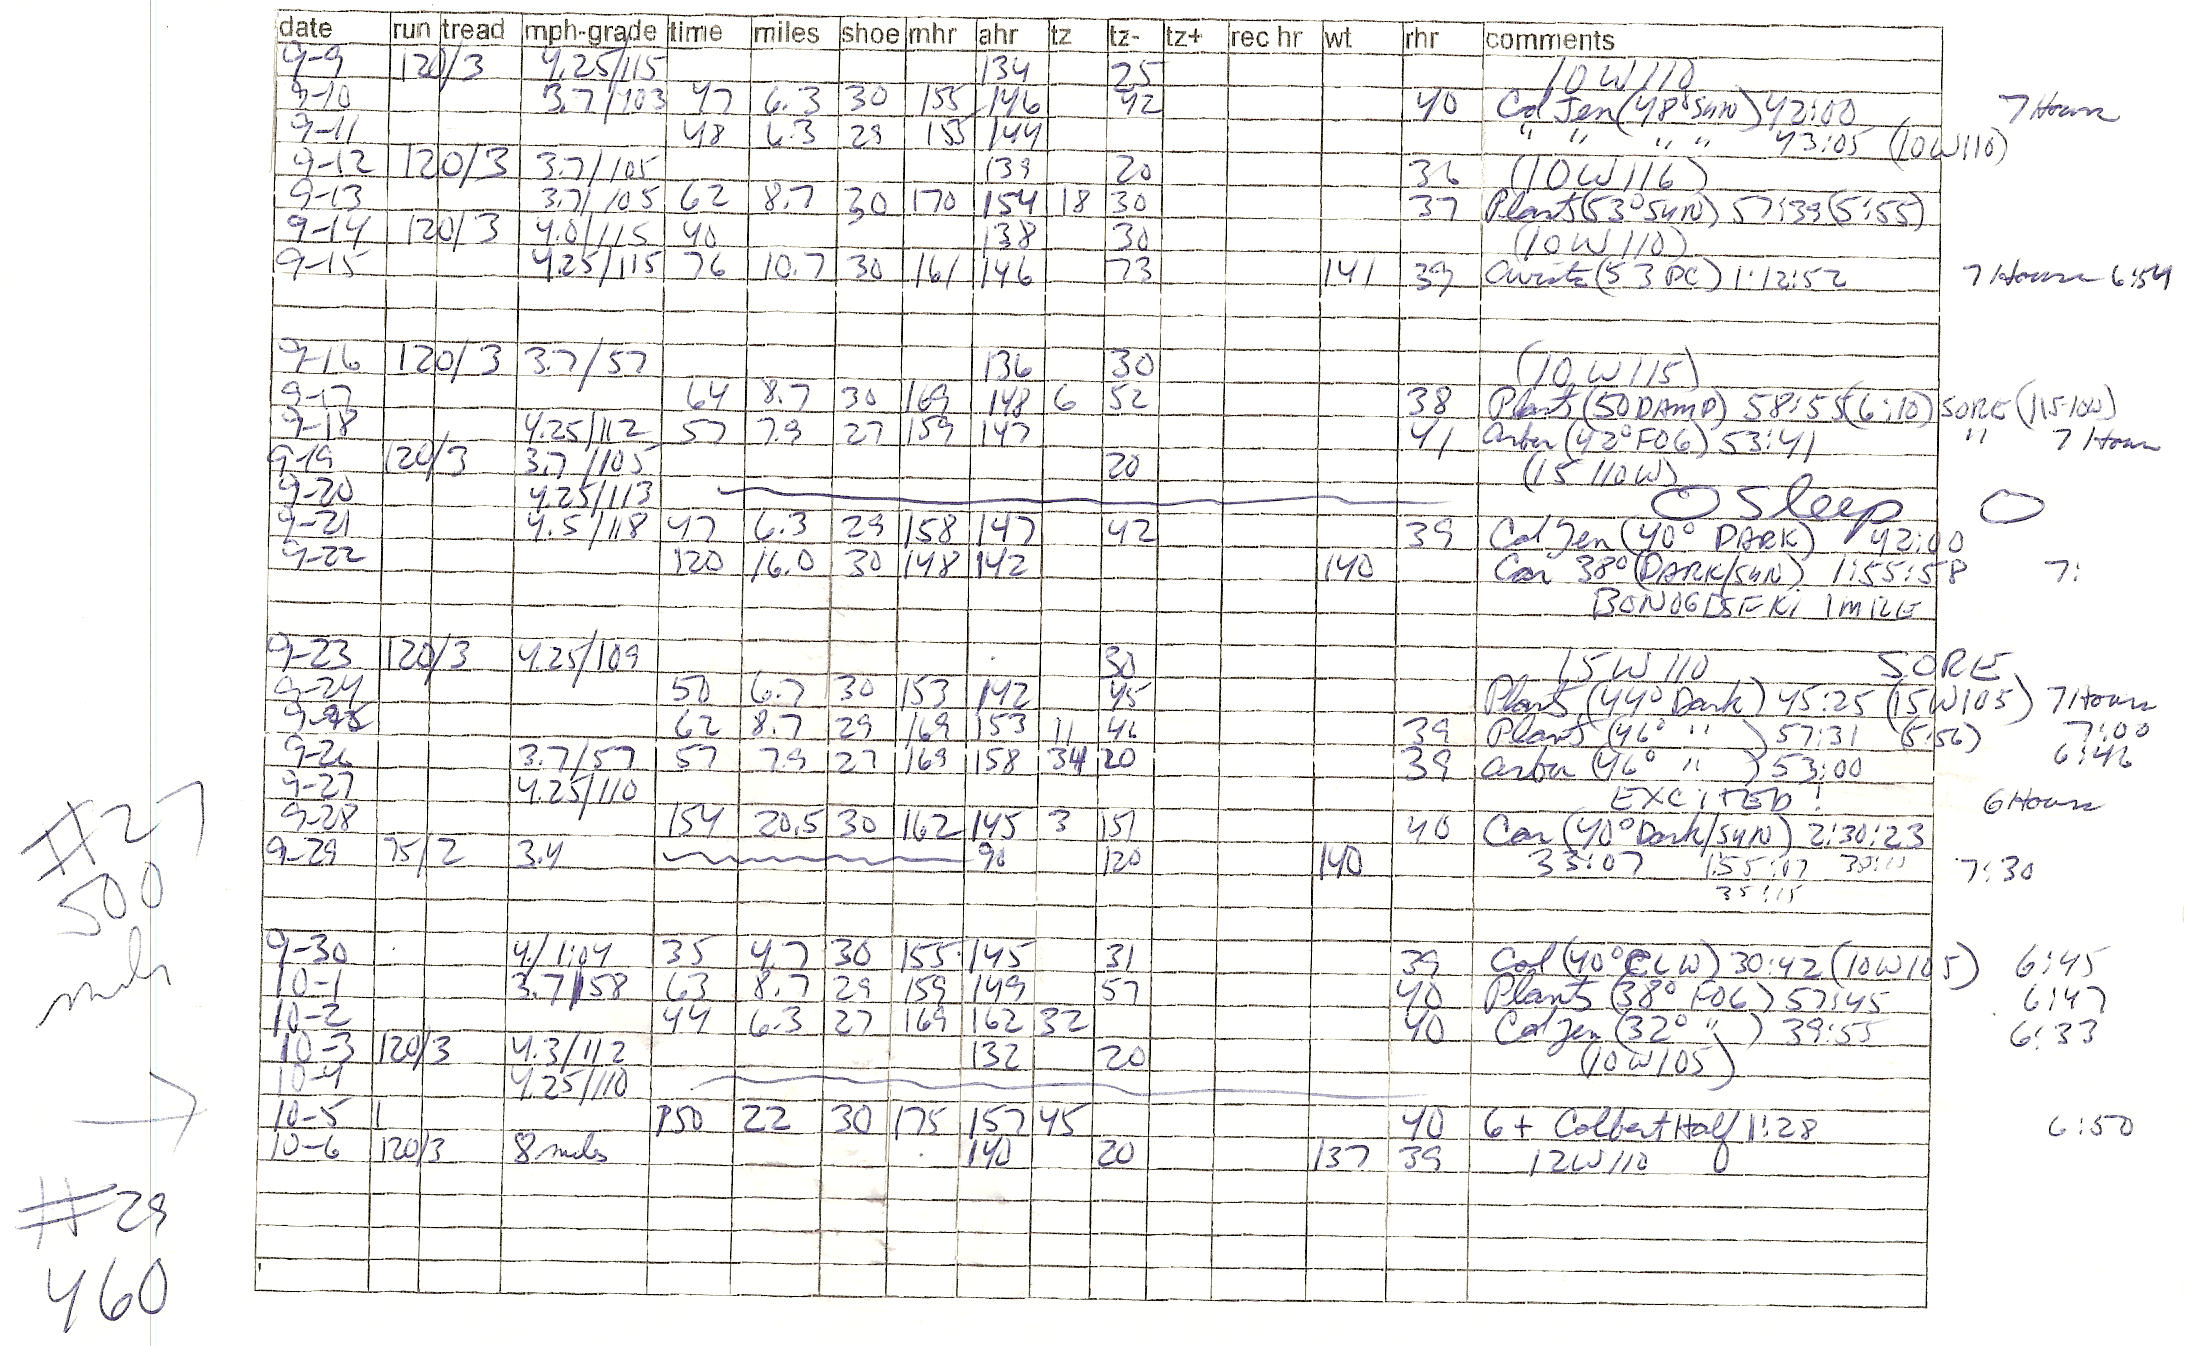 date run tread mph-grade time miles shoe mhr ahr tz tz- tz+ rec hr wt rhr comments
9-9 120/3 4.25/115 134 25 10W110
9-10 3.7/103 47 6.3 30 155 146 42 40 Col Jen (48° SUN) 42:00 7 Hours
9-11 48 6.3 29 155 144 " " " " 43:05 (10W110)
9-12 120/3 3.7/105 139 20 36 (10W116)
9-13 3.7/105 62 8.7 30 170 154 18 30 37 Plants (53° SUN) 57:39 (5:55)
9-14 120/3 4.0/115 40 138 30 (10W110)
9-15 4.25/115 76 10.7 30 161 146 73 141 39 (53 PC) 1:12:52 7 Hours 6:54
9-16 120/3 3.7/57 136 30 (10W115)
9-17 64 8.7 30 169 148 6 52 38 Plants (50 DAMP) 58:55 (6:10) SORE (115-10W)
9-18 4.25/112 57 7.9 27 159 147 41 Arbor (42° FOG) 53:41 " 7 Hours
9-19 120/3 3.7/105 20 (15 110W)
9-20 4.25/113 O Sleep O
9-21 4.5/118 47 6.3 29 158 147 42 39 Col Jen (40° DARK) 42:00
9-22 120 16.0 30 148 142 140 Car 38° (DARK/SUN) 1:55:58 7:
1 MILE
9-23 120/3 4.25/109 30 15W110 SORE
9-24 50 6.7 30 153 142 45 Plants (44° Dark) 45:25 (15W105) 7 Hours
9-25 62 8.7 29 169 153 11 46 39 Plants (46° " ) 57:31 (5:56) 7:00
9-26 3.7/57 57 7.9 27 169 158 34 20 39 Arbor (46° " ) 53:00 6:46
9-27 4.25/110 EXCITED! 6 Hours
9-28 154 20.5 30 162 145 3 151 40 Car (40° Dark/SUN) 2:30:23
9-29 75/2 3.4 90 120 140 33:07 1:55:07 7:30
35:15
9-30 4/1:04 35 4.7 30 155 145 31 39 Col (40° CLW) 30:42 (10W105) 6:45
10-1 3.7/58 63 8.7 29 159 149 57 40 Plants (38° FOG) 57:45 6:47
10-2 44 6.3 27 169 162 32 40 Col Jen (32° " ) 39:55 6:33
10-3 120/3 4.3/112 132 20 (10W105)
10-4 4.25/110
10-5 1 150 22 30 175 157 45 40 6+ Colbert Half 1:28 6:50
10-6 120/3 8 miles 140 20 137 39 12W110
#27
500
miles
#29
460